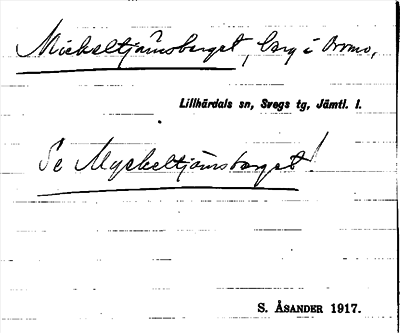 Mickeltjärnsberget, berg i Orrmo,
Lillhärdals sn, Svegs tg, Jämtl. l.
Se Myckeltjärnsberget!
S. ÅSANDER 1917.